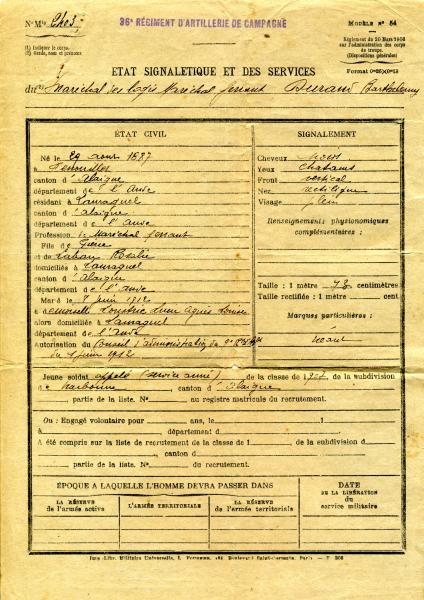 36e RÉGIMENT D'ARTILLERIE DE CAMPAGNE
N° Mle
MODÈLE N° 54
(1) Indiquer le corps.
(2) Grade, nom et prénoms
Règlement du 20 Mars 1906
sur l'administration des corps
de troupe.
(Dispositions générales)
Format
ETAT SIGNALETIQUE ET DES SERVICES
du Maréchal des logis Maréchal ferrant Durand Barthélemy
ÉTAT CIVIL
Né le 29 août 1887
à
canton d'Alaigne
département de l'Aude
résidant à
canton d'Alaigne
département de l'Aude
Profession de Maréchal ferrant
Fils de Pierre
et de Rosalie
domiciliés à
canton d'Alaigne
département de l'Aude
Marié le 8 juin 1912
à
alors domiciliée à
département de l'Aude
Autorisation du Conseil d'administration du
du 1 juin 1912
SIGNALEMENT
Cheveux noirs
Yeux châtains
Front vertical
Nez rectiligne
Visage plein
Renseignements physionomiques
complémentaires :
Taille : 1 mètre 73 centimètres
Taille rectifiée : 1 mètre cent
Marques particulières :
néant
Jeune soldat appelé (service armé) de la classe de 1907, de la subdivision
de Narbonne, canton d'Alaigne
partie de la liste. N° au registre matricule du recrutement.
Ou : Engagé volontaire pour ans, le 1
à département d
A été compris sur la liste de recrutement de la classe de 1 de la subdivision d
canton d
partie de la liste. N° du recrutement.
ÉPOQUE A LAQUELLE L'HOMME DEVRA PASSER DANS
LA RÉSERVE
de l'armée active
L'ARMÉE TERRITORIALE
LA RÉSERVE
de l'armée territoriale
DATE
DE LA LIBÉRATION
du
service militaire
Imp.-Libr. Militaire Universelle, L. Boulevard Saint-Germain, Paris